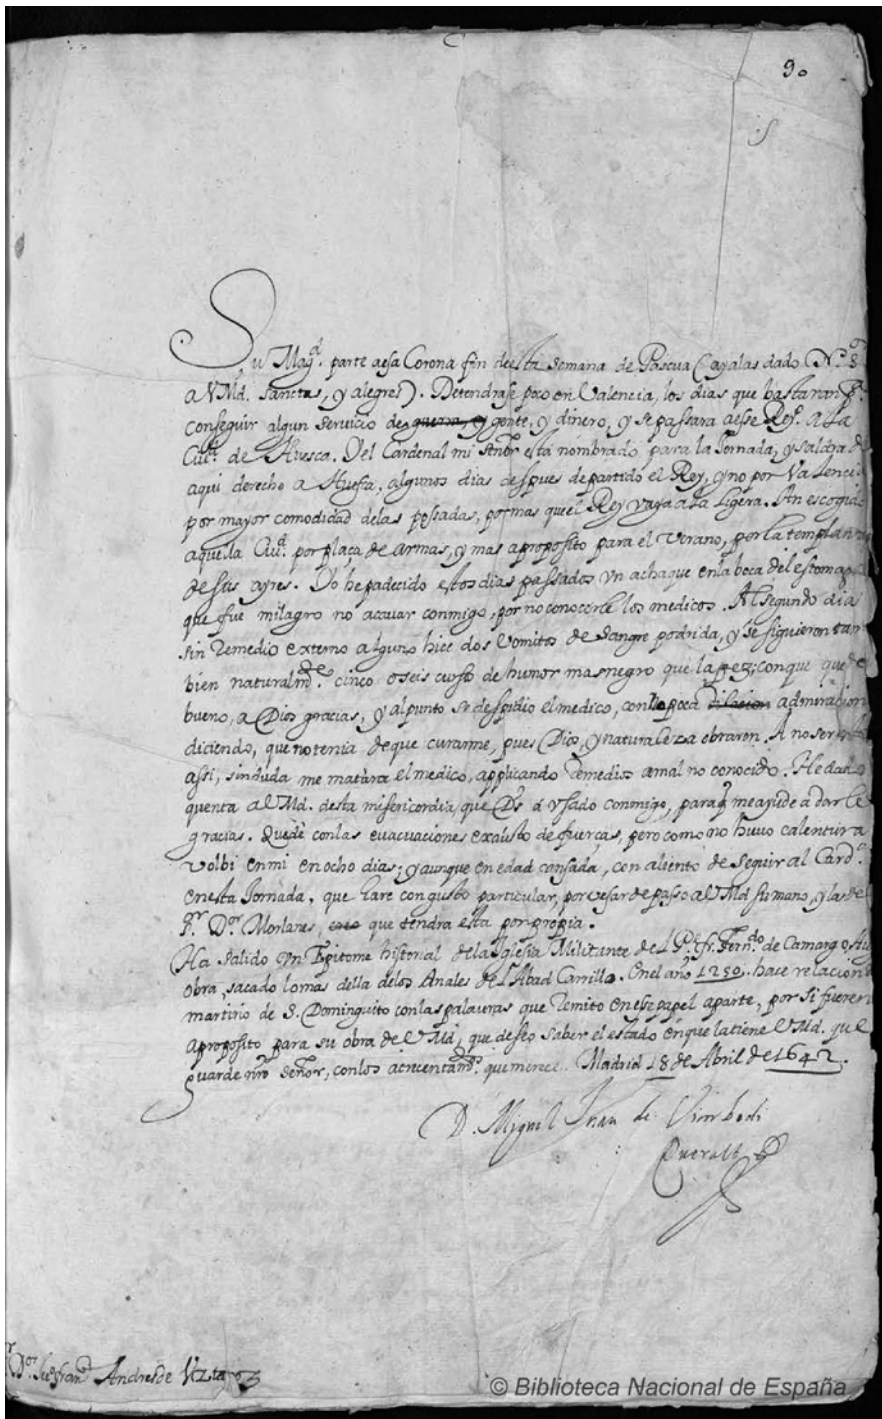 90
S
Su Magd. parte a esa Corona fin de esta semana de Pascua (ayalas dado N.º Sor
a VMd. sanctas, y alegres). Detendrase poco en Valencia, los dias que bastaran pa.
conseguir algun servicio de guerra, y gente, y dinero, y se passara a ese Reyº. a la
Ciud. de Huesca. Y el Cardenal mi Señor está nombrado para la Jornada, y saldra de
aqui derecho a Huesca, algunos dias despues de partido el Rey, y no por Valencia
por mayor comodidad de las possadas, por mas que el Rey vaya a la Ligera. An escogido
aquella Ciud. por plaça de armas, y mas a proposito para el verano, por la templança
de sus ayres. Yo he padecido estos dias passados vn achaque en la boca del estomago
que fue milagro no acavar conmigo, por no conocerle los medicos. Al segundo dia
sin remedio externo alguno hice dos vomitos de sangre podrida, y se siguieron tan
bien naturalmde. cinco o seis cursos de humor mas negro que la pez; con que quedé
bueno, a Dios gracias, y al punto se despidio el medico, con no poca dilacion admiracion
diciendo, que no tenia de que curarme, pues Dios, y naturaleza obraron. A no ser
assi, sin duda me matàra el medico, applicando remedios a mal no conocido. He dado
quenta a VMd. desta misericordia, que Ds. á vsado conmigo, para q me ayude a darle
gracias. Quedè con las evacuaciones exausto de fuerças, pero como no huvo calentura
volbi en mi en ocho dias; y aunque en edad cansada, con aliento de seguir al Cardl.
en esta Jornada, que hare con gusto particular, por vesar de passo a VMd su mano, y las del
Sr. Dor. Morlanes, que tendra esta por propia.
Ha salido vn Epitome historial de la Iglesia Militante del Pe. fr. Ferndo. de Camargo,
obra, sacado lo mas della de los Anales del Abad Carrillo. En el año 1250. hace relacion
martirio de S. Dominguito con las palauras que remito en ese papel aparte, por si fueren
a proposito para su obra de VMd, que deseo saber el estado en que la tiene VMd. que
guarde nro Señor, con los acrecentamtos. que merece. Madrid 18 de Abril de 1642.
D. Miguel Juan de Vimbodi
Queralt
Dor. Juo. franco. Andres de Uztaroz
© Biblioteca Nacional de España